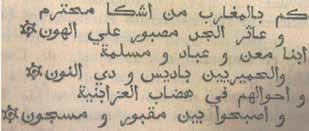 كم بالمغارب من اشكا محترم
و عاثر الجد مصبور علي الهون
ابنا معن و عباد و مسلمة
والحميريين باديس و دي النون
و احوالهم في هضاب العز اثنية
و اصبحوا بين مقبور و مسجون